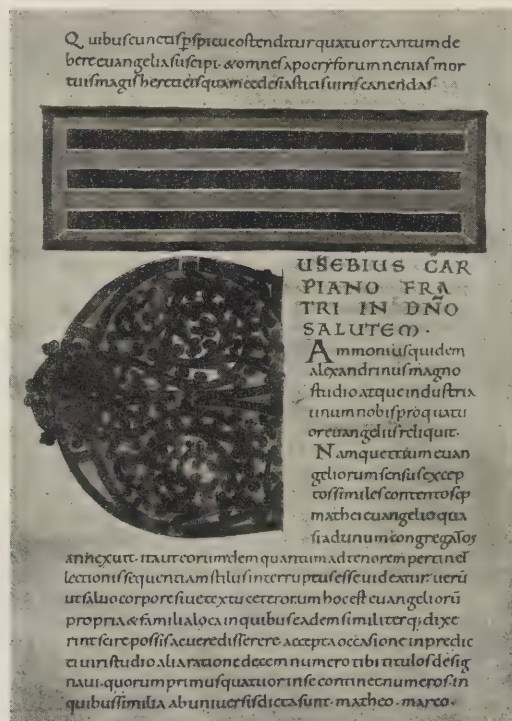 Quibus cunctis pspicue ostenditur quatuor tantum de
bere euangelia suscipi · & omnes apocryforum nenias mor
tuis magis hereticis quam ecclesiasticis uiris canendas·
USEBIUS CAR
PIANO FRA
TRI IN DÑO
SALUTEM ·
Ammonius quidem
alexandrinus magno
studio atque industria
unum nobis pro quatu
or euangeliis reliquit·
Namque trium euan
geliorum sensus excep
tos similes contentosq
mathei euangelio qua
si ad unum congregatos
annexuit · ita ut eorumdem quantum ad tenorem pertinet
lectionis sequentiam stilus interruptus esse uideatur· uerū
ut saluo corpore siue textu ceterorum hoc est euangeliorū
propria & familia loca in quibus eadem similiter q; dixe
rint scire possis ac uere disserere accepta occasione in predic
ti uiri studio alia ratione decem numero tibi titulos desig
naui· quorum primus quatuor in se continet numeros· in
quibus similia ab uniuersis dicta sunt · matheo · marco ·